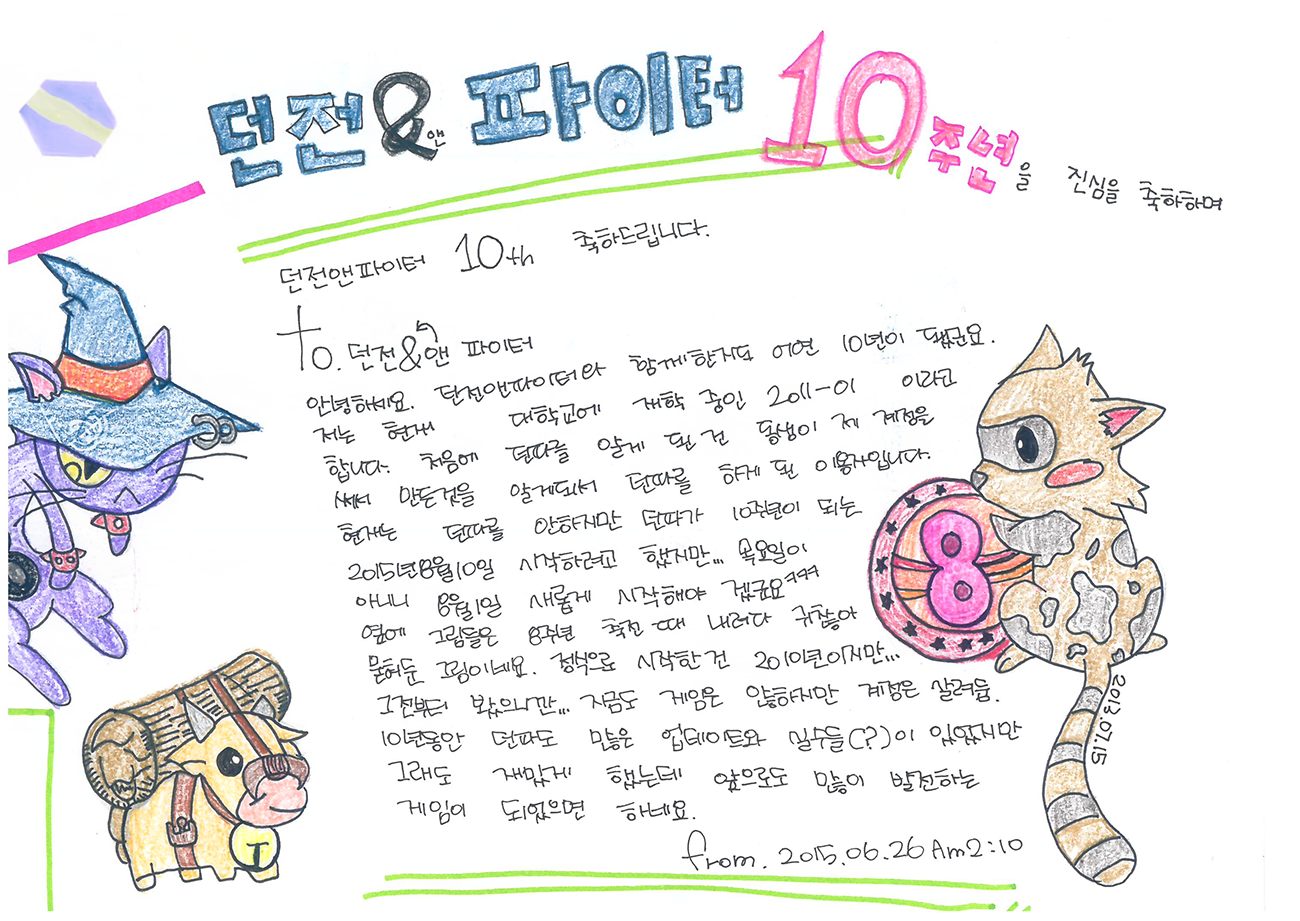 던전&앤 파이터 10주년을 진심을 축하하며
던전앤파이터 10th 축하드립니다.
To. 던전&앤 파이터
안녕하세요. 던전앤파이터와 함께한지도 어연 10년이 됐군요.
저는 현재 대학교에 재학 중인 2011-01 이라고
합니다. 처음에 던파를 알게 된 건 동생이 제 계정을
써서 만든것을 알게되서 던파를 하게 된 이용자입니다.
현재는 던파를 안하지만 던파가 10주년이 되는
2015년 8월 10일 시작하려고 했지만... 목요일이
아니니 8월 1일 새롭게 시작해야 겠군요ㅋㅋㅋ
옆에 그림들은 8주년 축전 때 내려다 귀찮아
묻혀둔 그림이네요. 정식으로 시작한건 2010년이지만...
그전부터 봤으니깐... 지금도 게임은 않하지만 계정은 살려둠.
10년동안 던파도 많은 업데이트와 실수들(?)이 있었지만
그래도 재밌게 했는데 앞으로도 많이 발전하는
게임이 되었으면 하네요.
from. 2015.06.26 Am2:10
8
2013.07.15
T